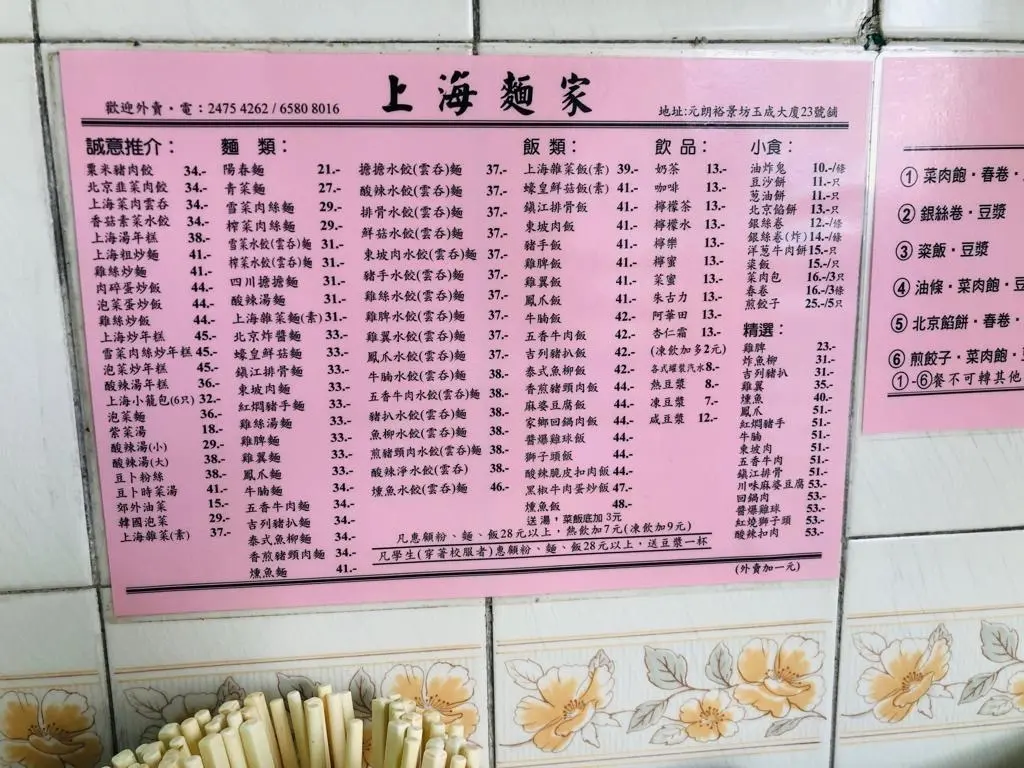 上海麵家
歡迎外賣·電：2475 4262 / 6580 8016
地址:元朗裕景坊玉成大廈23號舖
誠意推介：
粟米豬肉餃 34.-
北京韭菜肉餃 34.-
上海菜肉雲吞 34.-
香菇素菜水餃 34.-
上海湯年糕 38.-
上海粗炒麵 41.-
雞絲炒麵 41.-
肉碎蛋炒飯 44.-
泡菜蛋炒飯 44.-
雞絲炒飯 44.-
上海炒年糕 45.-
雪菜肉絲炒年糕 45.-
泡菜炒年糕 45.-
酸辣湯年糕 36.-
上海小籠包(6只) 32.-
泡菜麵 36.-
紫菜湯 18.-
酸辣湯(小) 29.-
酸辣湯(大) 38.-
豆卜粉絲 38.-
豆卜時菜湯 41.-
郊外油菜 15.-
韓國泡菜 29.-
上海雜菜(素) 37.-
麵 類：
陽春麵 21.-
青菜麵 27.-
雪菜肉絲麵 29.-
榨菜肉絲麵 29.-
雪菜水餃(雲吞)麵 31.-
榨菜水餃(雲吞)麵 31.-
四川擔擔麵 31.-
酸辣湯麵 31.-
上海雜菜麵(素) 31.-
北京炸醬麵 33.-
蠔皇鮮菇麵 33.-
鎮江排骨麵 33.-
東坡肉麵 33.-
紅燜豬手麵 33.-
雞絲湯麵 33.-
雞脾麵 33.-
雞翼麵 33.-
鳳爪麵 33.-
牛腩麵 34.-
五香牛肉麵 34.-
吉列豬扒麵 34.-
泰式魚柳麵 34.-
香煎豬頸肉麵 34.-
燻魚麵 41.-
擔擔水餃(雲吞)麵 37.-
酸辣水餃(雲吞)麵 37.-
排骨水餃(雲吞)麵 37.-
鮮菇水餃(雲吞)麵 37.-
東坡肉水餃(雲吞)麵 37.-
豬手水餃(雲吞)麵 37.-
雞絲水餃(雲吞)麵 37.-
雞脾水餃(雲吞)麵 37.-
雞翼水餃(雲吞)麵 37.-
鳳爪水餃(雲吞)麵 37.-
牛腩水餃(雲吞)麵 38.-
五香牛肉水餃(雲吞)麵 38.-
豬扒水餃(雲吞)麵 38.-
魚柳水餃(雲吞)麵 38.-
煎豬頸肉水餃(雲吞)麵 38.-
酸辣淨水餃(雲吞) 38.-
燻魚水餃(雲吞)麵 46.-
飯 類：
上海雜菜飯(素) 39.-
蠔皇鮮菇飯(素) 41.-
鎮江排骨飯 41.-
東坡肉飯 41.-
豬手飯 41.-
雞脾飯 41.-
雞翼飯 41.-
鳳爪飯 41.-
牛腩飯 42.-
五香牛肉飯 42.-
吉列豬扒飯 42.-
泰式魚柳飯 42.-
香煎豬頸肉飯 44.-
麻婆豆腐飯 44.-
家鄉回鍋肉飯 44.-
醬爆雞球飯 44.-
獅子頭飯 44.-
酸辣脆皮扣肉飯 44.-
黑椒牛肉蛋炒飯 47.-
燻魚飯 48.-
送湯，菜飯底加 3元
飲 品：
奶茶 13.-
咖啡 13.-
檸檬茶 13.-
檸檬水 13.-
檸樂 13.-
檸蜜 13.-
菜蜜 13.-
朱古力 13.-
阿華田 13.-
杏仁霜 13.-
(凍飲加多2元)
各式罐裝汽水 8.-
熱豆漿 8.-
凍豆漿 7.-
咸豆漿 12.-
小食：
油炸鬼 10.-/條
豆沙餅 11.-只
蔥油餅 11.-只
北京餡餅 13.-只
銀絲卷 12.-/條
銀絲卷(炸) 14.-/條
洋蔥牛肉餅 15.-只
粢飯 15.-/只
菜肉包 16.-/3只
春卷 16.-/3條
煎餃子 25.-/5只
精選：
雞脾 23.-
炸魚柳 31.-
吉列豬扒 31.-
雞翼 35.-
燻魚 40.-
鳳爪 51.-
紅燜豬手 51.-
牛腩 51.-
東坡肉 51.-
五香牛肉 51.-
鎮江排骨 51.-
川味麻婆豆腐 53.-
回鍋肉 53.-
醬爆雞球 53.-
紅燒獅子頭 53.-
酸辣扣肉 53.-
凡惠顧粉、麵、飯28元以上，熱飲加7元(凍飲加9元)
凡學生(穿著校服者)惠顧粉、麵、飯28元以上，送豆漿一杯
(外賣加一元)
① 菜肉飽·春卷·
② 銀絲卷·豆漿
③ 粢飯·豆漿
④ 油條·菜肉飽·豆
⑤ 北京餡餅·春卷·
⑥ 煎餃子·菜肉飽·豆
①-⑥餐不可轉其他